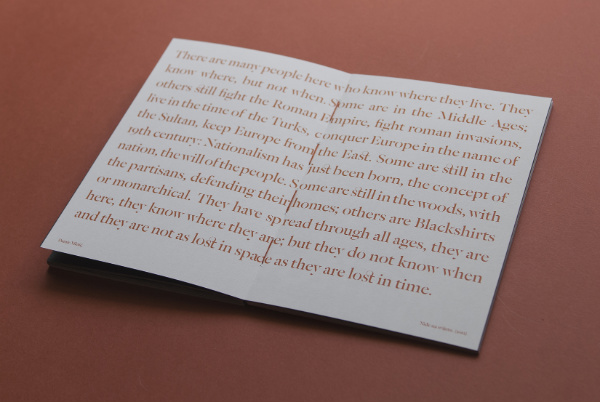 There are many people here who know where they live. They
know where, but not when. Some are in the Middle Ages;
others still fight the Roman Empire, fight roman invasions,
live in the time of the Turks, conquer Europe in the name of
the Sultan, keep Europe from the East. Some are still in the
19th century: Nationalism has just been born, the concept of
nation, the will of the people. Some are still in the woods, with
the partisans, defending their homes; others are Blackshirts
or monarchical. They have spread through all ages, they are
here, they know where they are; but they do not know when
and they are not as lost in space as they are lost in time.